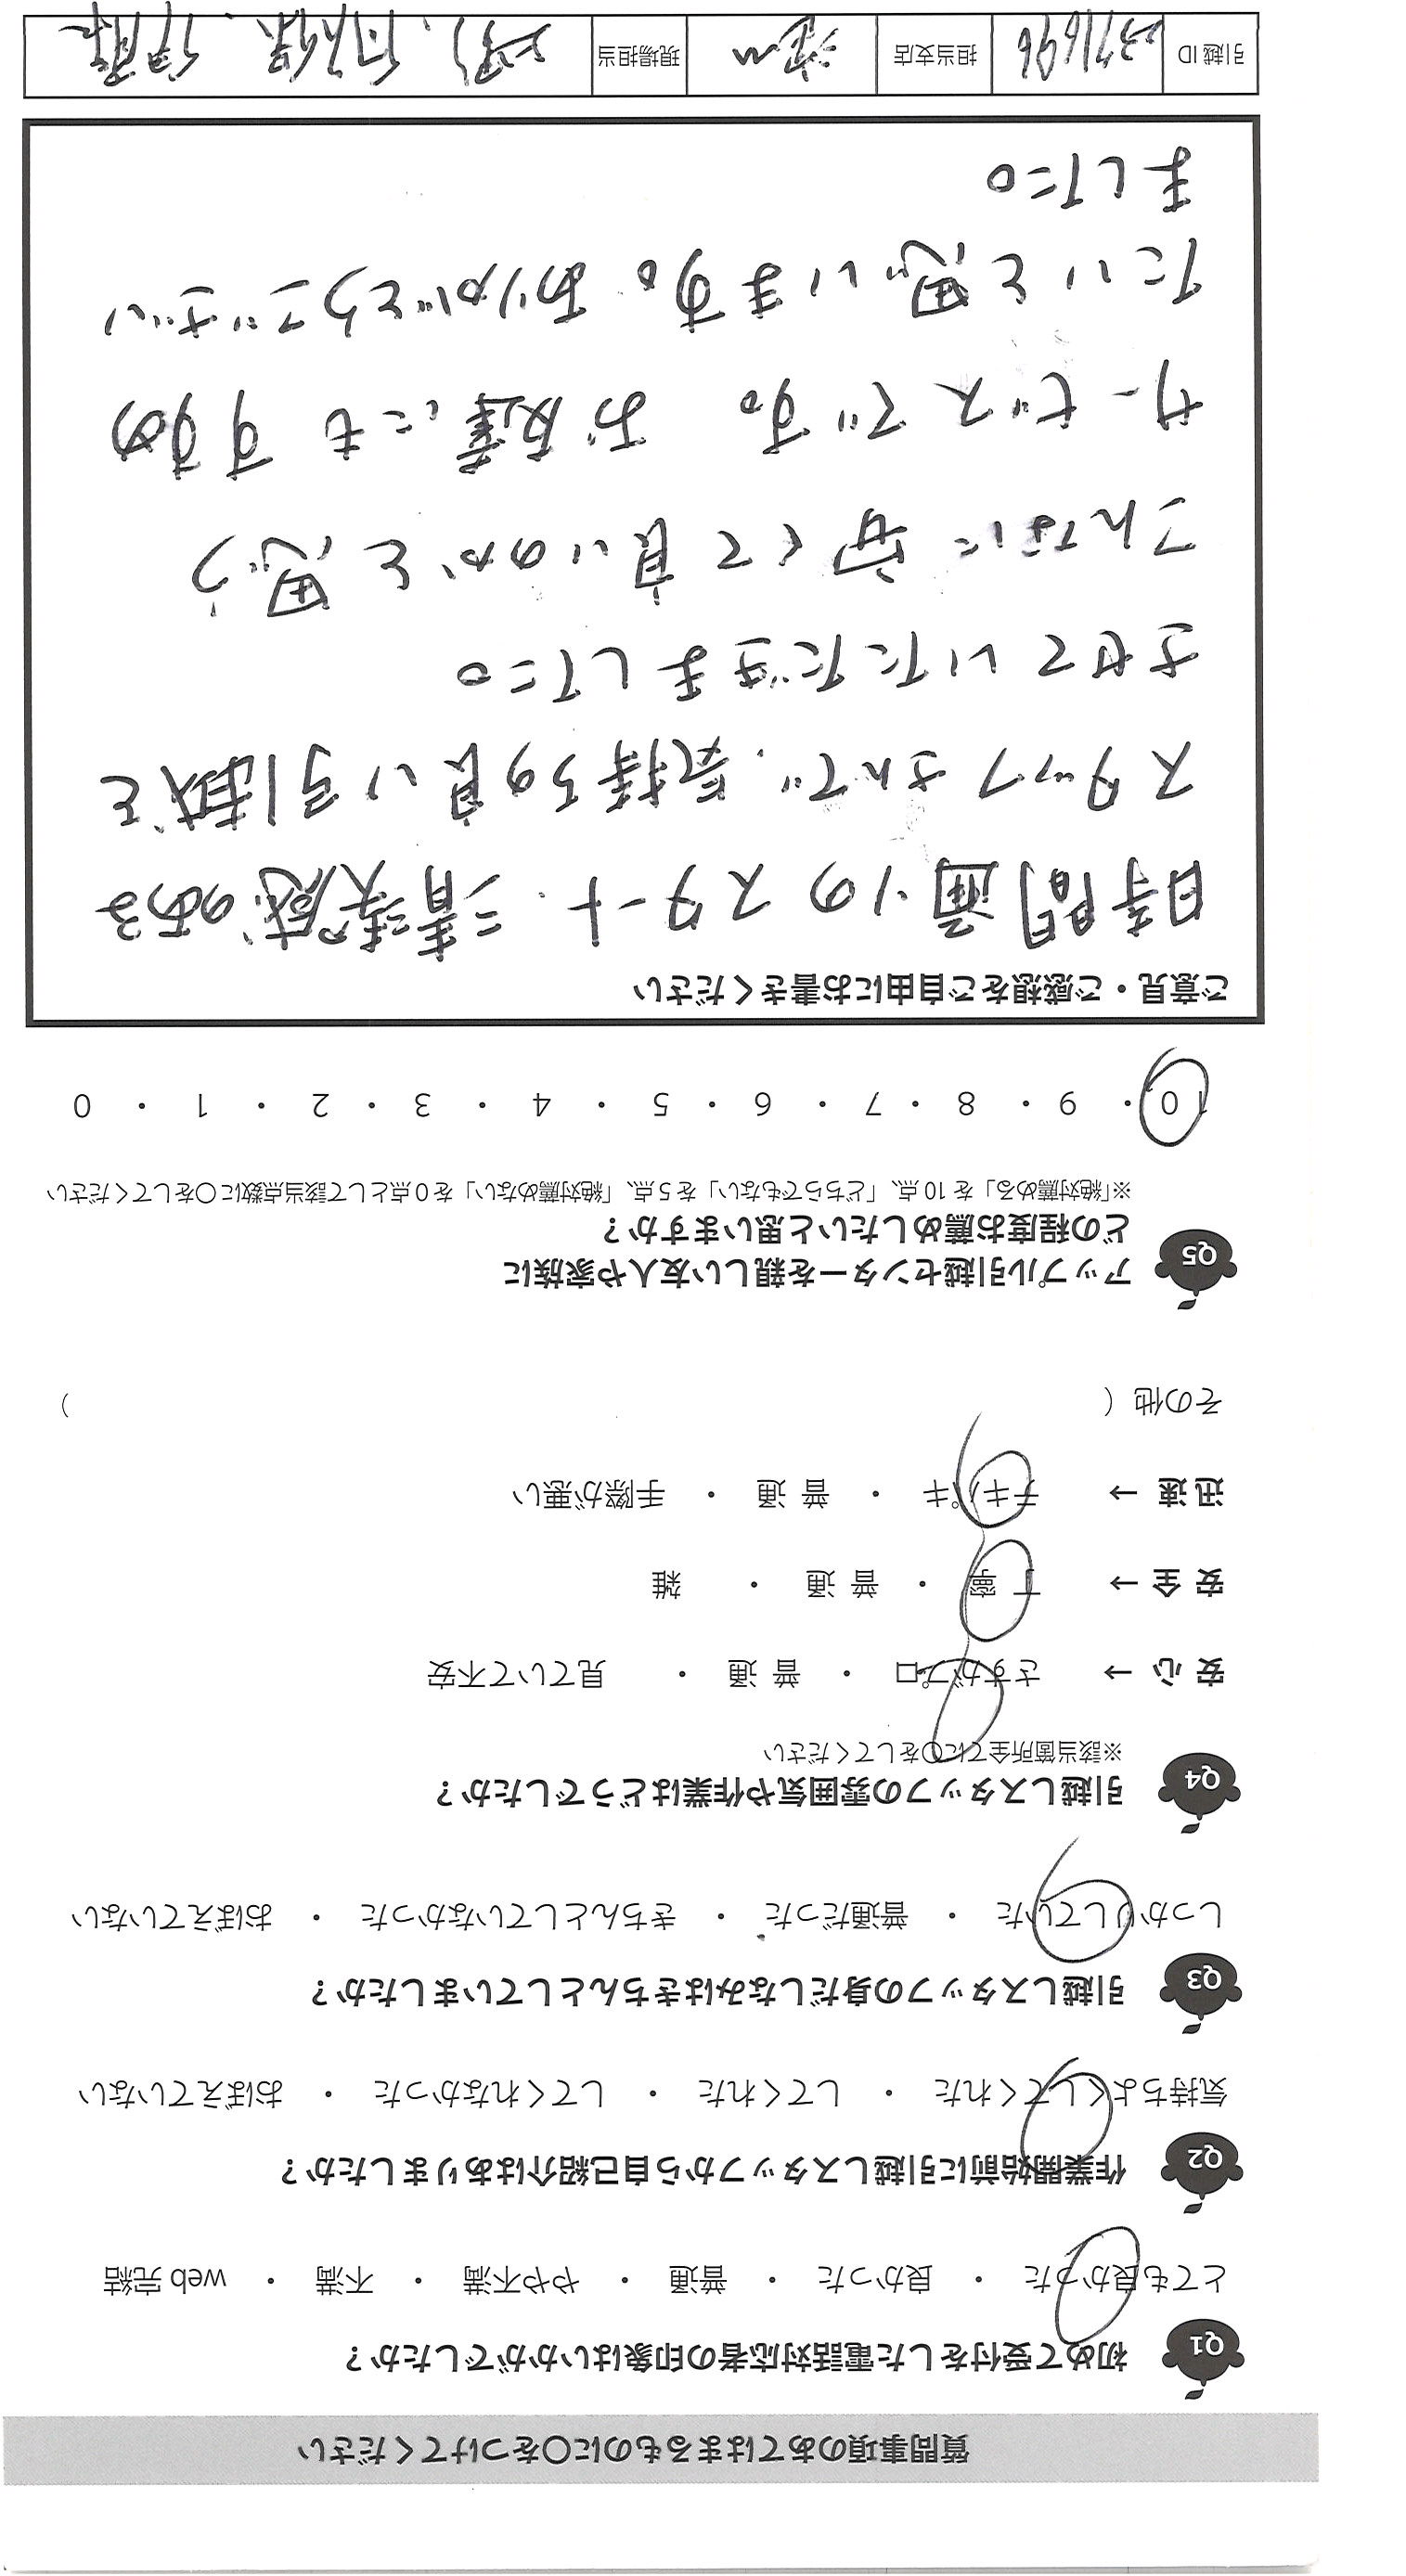 質問事項のあてはまるものに〇をつけてください
Q1 初めて受付をした電話対応者の印象はいかがでしたか？
とても良かった ・ 良かった ・ 普通 ・ やや不満 ・ 不満 ・ web 完結
Q2 作業開始前に引越しスタッフから自己紹介はありましたか？
気持ちよくしてくれた ・ してくれた ・ してくれなかった ・ おぼえていない
Q3 引越しスタッフの身だしなみはきちんとしていましたか？
しっかりしていた ・ 普通だった ・ きちんとしていなかった ・ おぼえていない
Q4 引越しスタッフの雰囲気や作業はどうでしたか？
※該当箇所全てに〇をしてください
安 心 → さすがプロ ・ 普 通 ・ 見ていて不安
安 全 → 丁 寧 ・ 普 通 ・ 雑
迅 速 → テキパキ ・ 普 通 ・ 手際が悪い
その他（ ）
Q5 アップル引越センターを親しい友人や家族に
どの程度お薦めしたいと思いますか？
※「絶対薦める」を 10 点、「どちらでもない」を 5 点、「絶対薦めない」を 0 点として該当点数に〇をしてください
10 ・ 9 ・ 8 ・ 7 ・ 6 ・ 5 ・ 4 ・ 3 ・ 2 ・ 1 ・ 0
ご意見・ご感想をご自由にお書きください
時間通りのスタート、清潔感のある
スタッフさんで、気持ちの良い引越を
させていただきました。
こんなに安くて良いのかと思う
サービスです。お友達にもすすめ
たいと思います。ありがとうござい
ました。
引越 ID 2371696 担当支店 現場担当